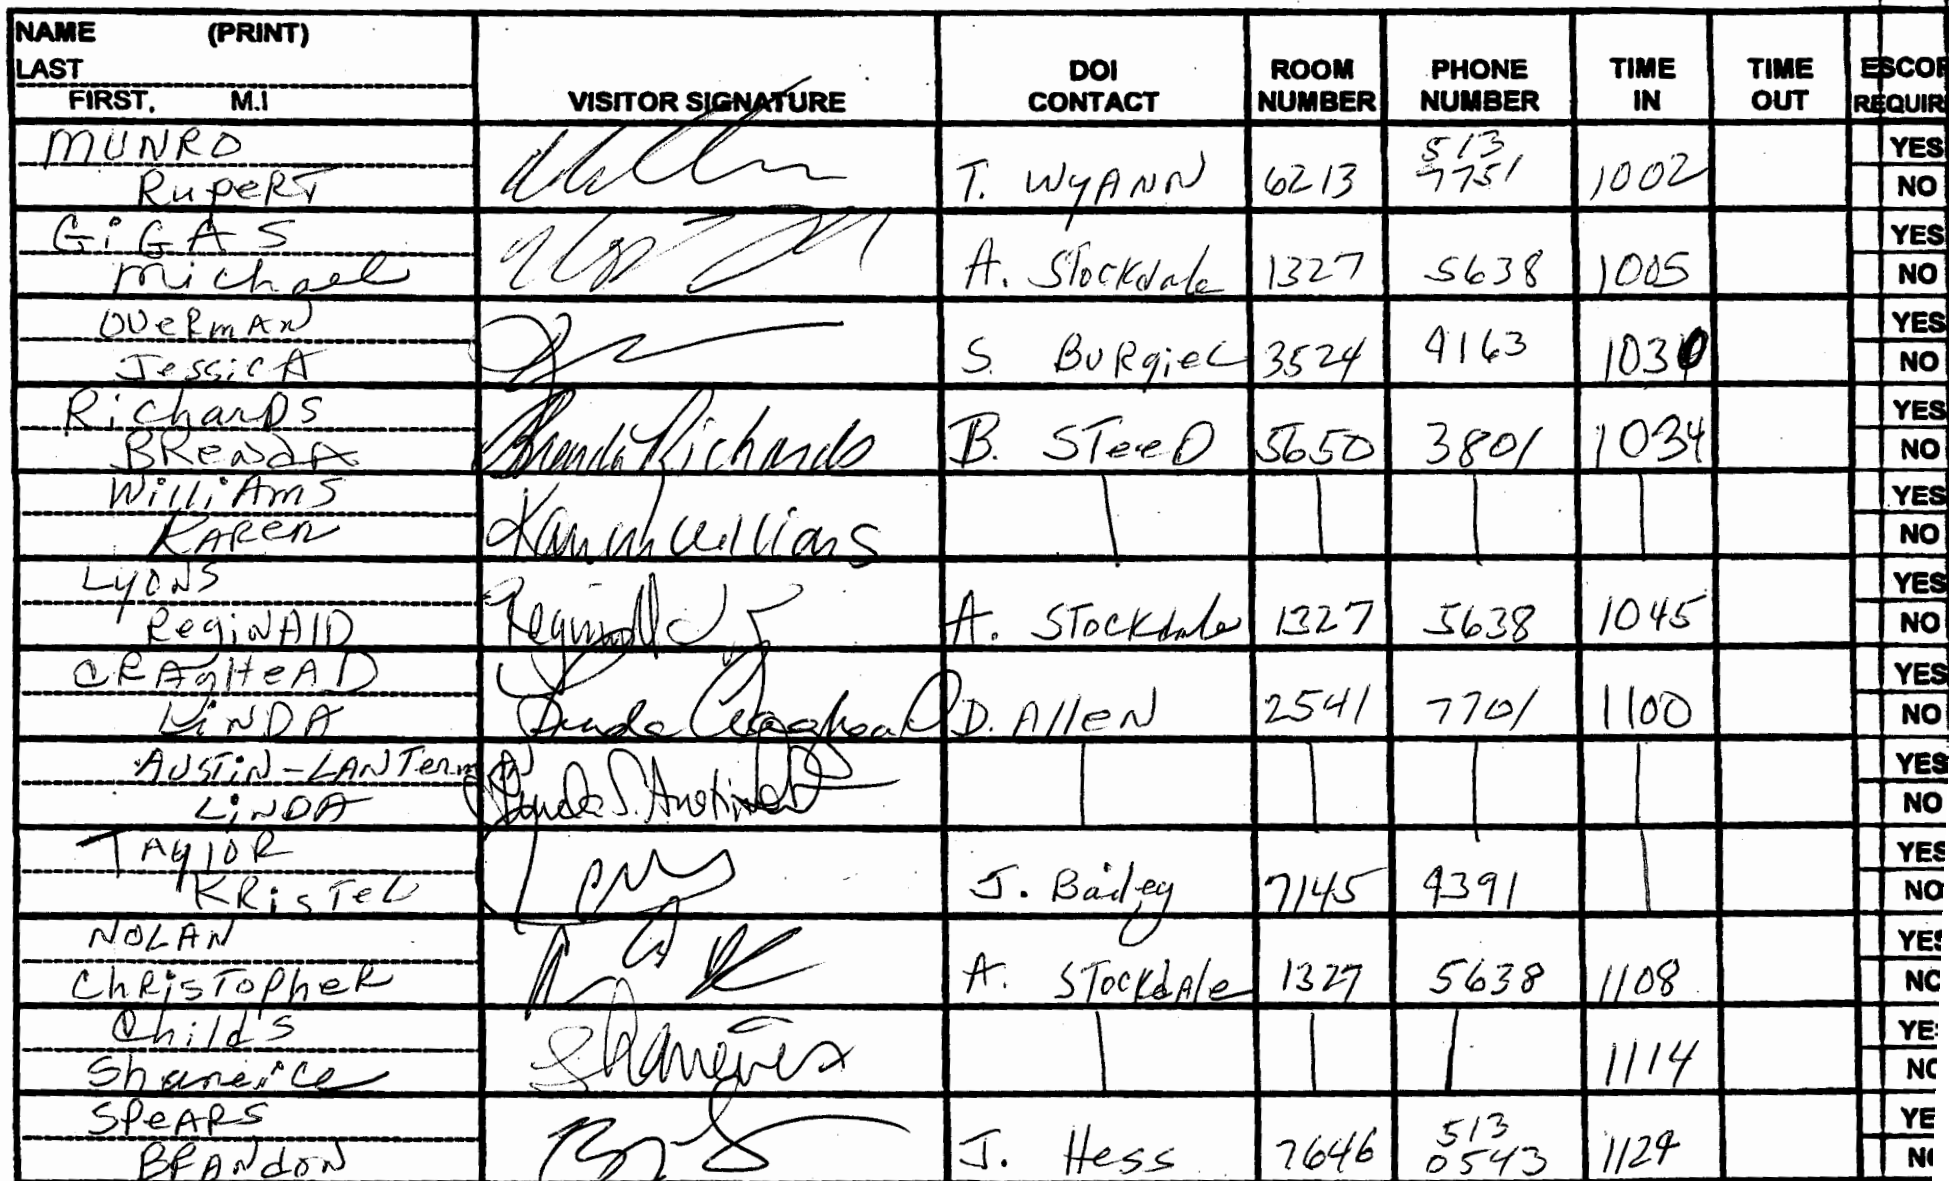 NAME (PRINT)
LAST
FIRST, M.I
VISITOR SIGNATURE
DOI CONTACT
ROOM NUMBER
PHONE NUMBER
TIME IN
TIME OUT
ESCOR
REQUIR
MUNRO
RupeRT T. WyANN 6213 513 7751 1002 YES NO
GiGAS
Michael A. Stockdale 1327 5638 1005 YES NO
OVeRmAN
JessicA S. BuRgieL 3524 4163 1030 YES NO
RichaRDS
BRendA Brenda Richards B. STeeD 5650 3801 1034 YES NO
WilliAmS
KAReN Williams | | | | YES NO
LyONS
RegiNAlD Reginald A. STockdale 1327 5638 1045 YES NO
CRAgHeAD
LiNDA Linda Craghead D. AlleN 2541 7701 1100 YES NO
AUSTiN-LANTermAN
LiNDA Linda S. Austin | | | | YES NO
TAylOR
KRisTeL J. Bailey 7145 4391 | YES NO
NOLAN
ChRisTopheR A. STockdAle 1327 5638 1108 YES NO
Childs
Shaneice | | | 1114 YE NO
SPeARS
BRANdoN J. Hess 7646 513 0543 1124 YE NO